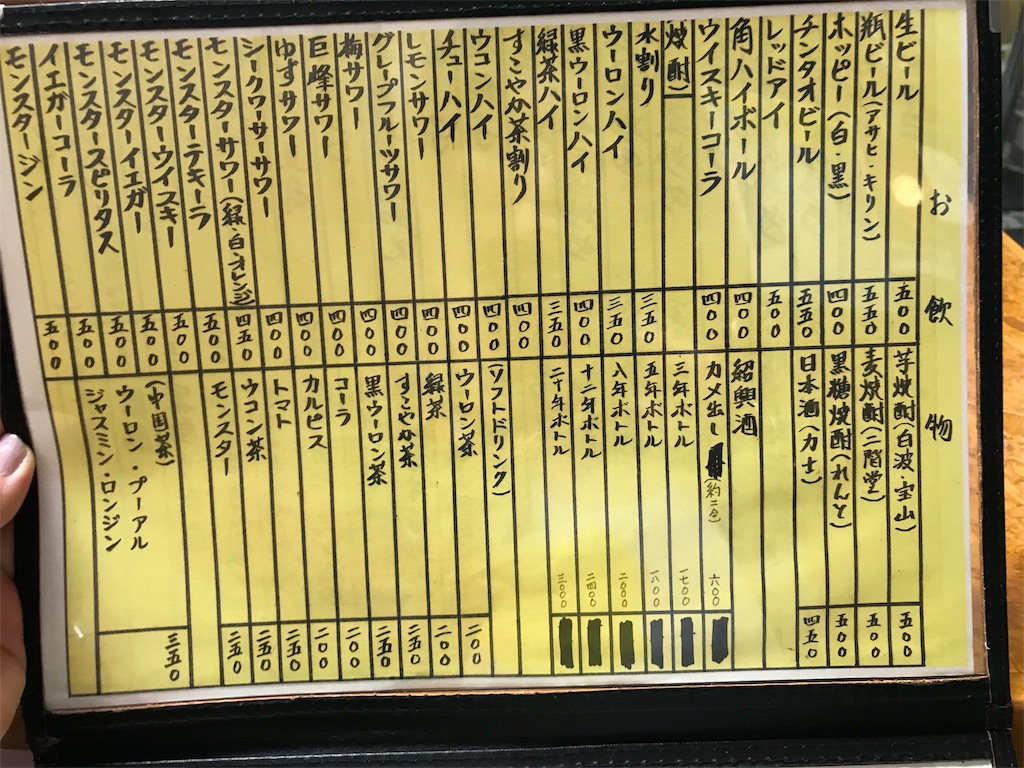 お飲物
生ビール 五〇〇
瓶ビール(アサヒ・キリン) 五五〇
ホッピー(白・黒) 四〇〇
チンタオビール 五五〇
レッドアイ 五〇〇
角ハイボール 四〇〇
ウイスキーコーラ 四〇〇
焼酎)
水割り 三五〇
ウーロンハイ 三五〇
黒ウーロンハイ 四〇〇
緑茶ハイ 三五〇
すこやか茶割り 四〇〇
ウコンハイ 四〇〇
チューハイ 四〇〇
レモンサワー 四〇〇
グレープフルーツサワー 四〇〇
梅サワー 四〇〇
巨峰サワー 四〇〇
ゆずサワー 四〇〇
シークワーサーサワー 四〇〇
モンスターサワー(緑・白・オレンジ) 四五〇
モンスターテキーラ 五〇〇
モンスターウイスキー 五〇〇
モンスターイエガー 五〇〇
モンスタースピリタス 五〇〇
イエガーコーラ 五〇〇
モンスタージン 五〇〇
芋焼酎(白波・宝山) 五〇〇
麦焼酎(二階堂) 五〇〇
黒糖焼酎(れんと) 五〇〇
日本酒(力士) 四五〇
紹興酒
カメ出し(約二合) 六〇〇
三年ボトル 一七〇〇
五年ボトル 一八〇〇
八年ボトル 二〇〇〇
十二年ボトル 二四〇〇
二十年ボトル 三〇〇〇
(ソフトドリンク)
ウーロン茶 二〇〇
緑茶 二〇〇
すこやか茶 二五〇
黒ウーロン茶 二五〇
コーラ 二〇〇
カルピス 二〇〇
トマト 二五〇
ウコン茶 二五〇
モンスター 二五〇
(中国茶)
ウーロン・プーアル
ジャスミン・ロンジン 三五〇